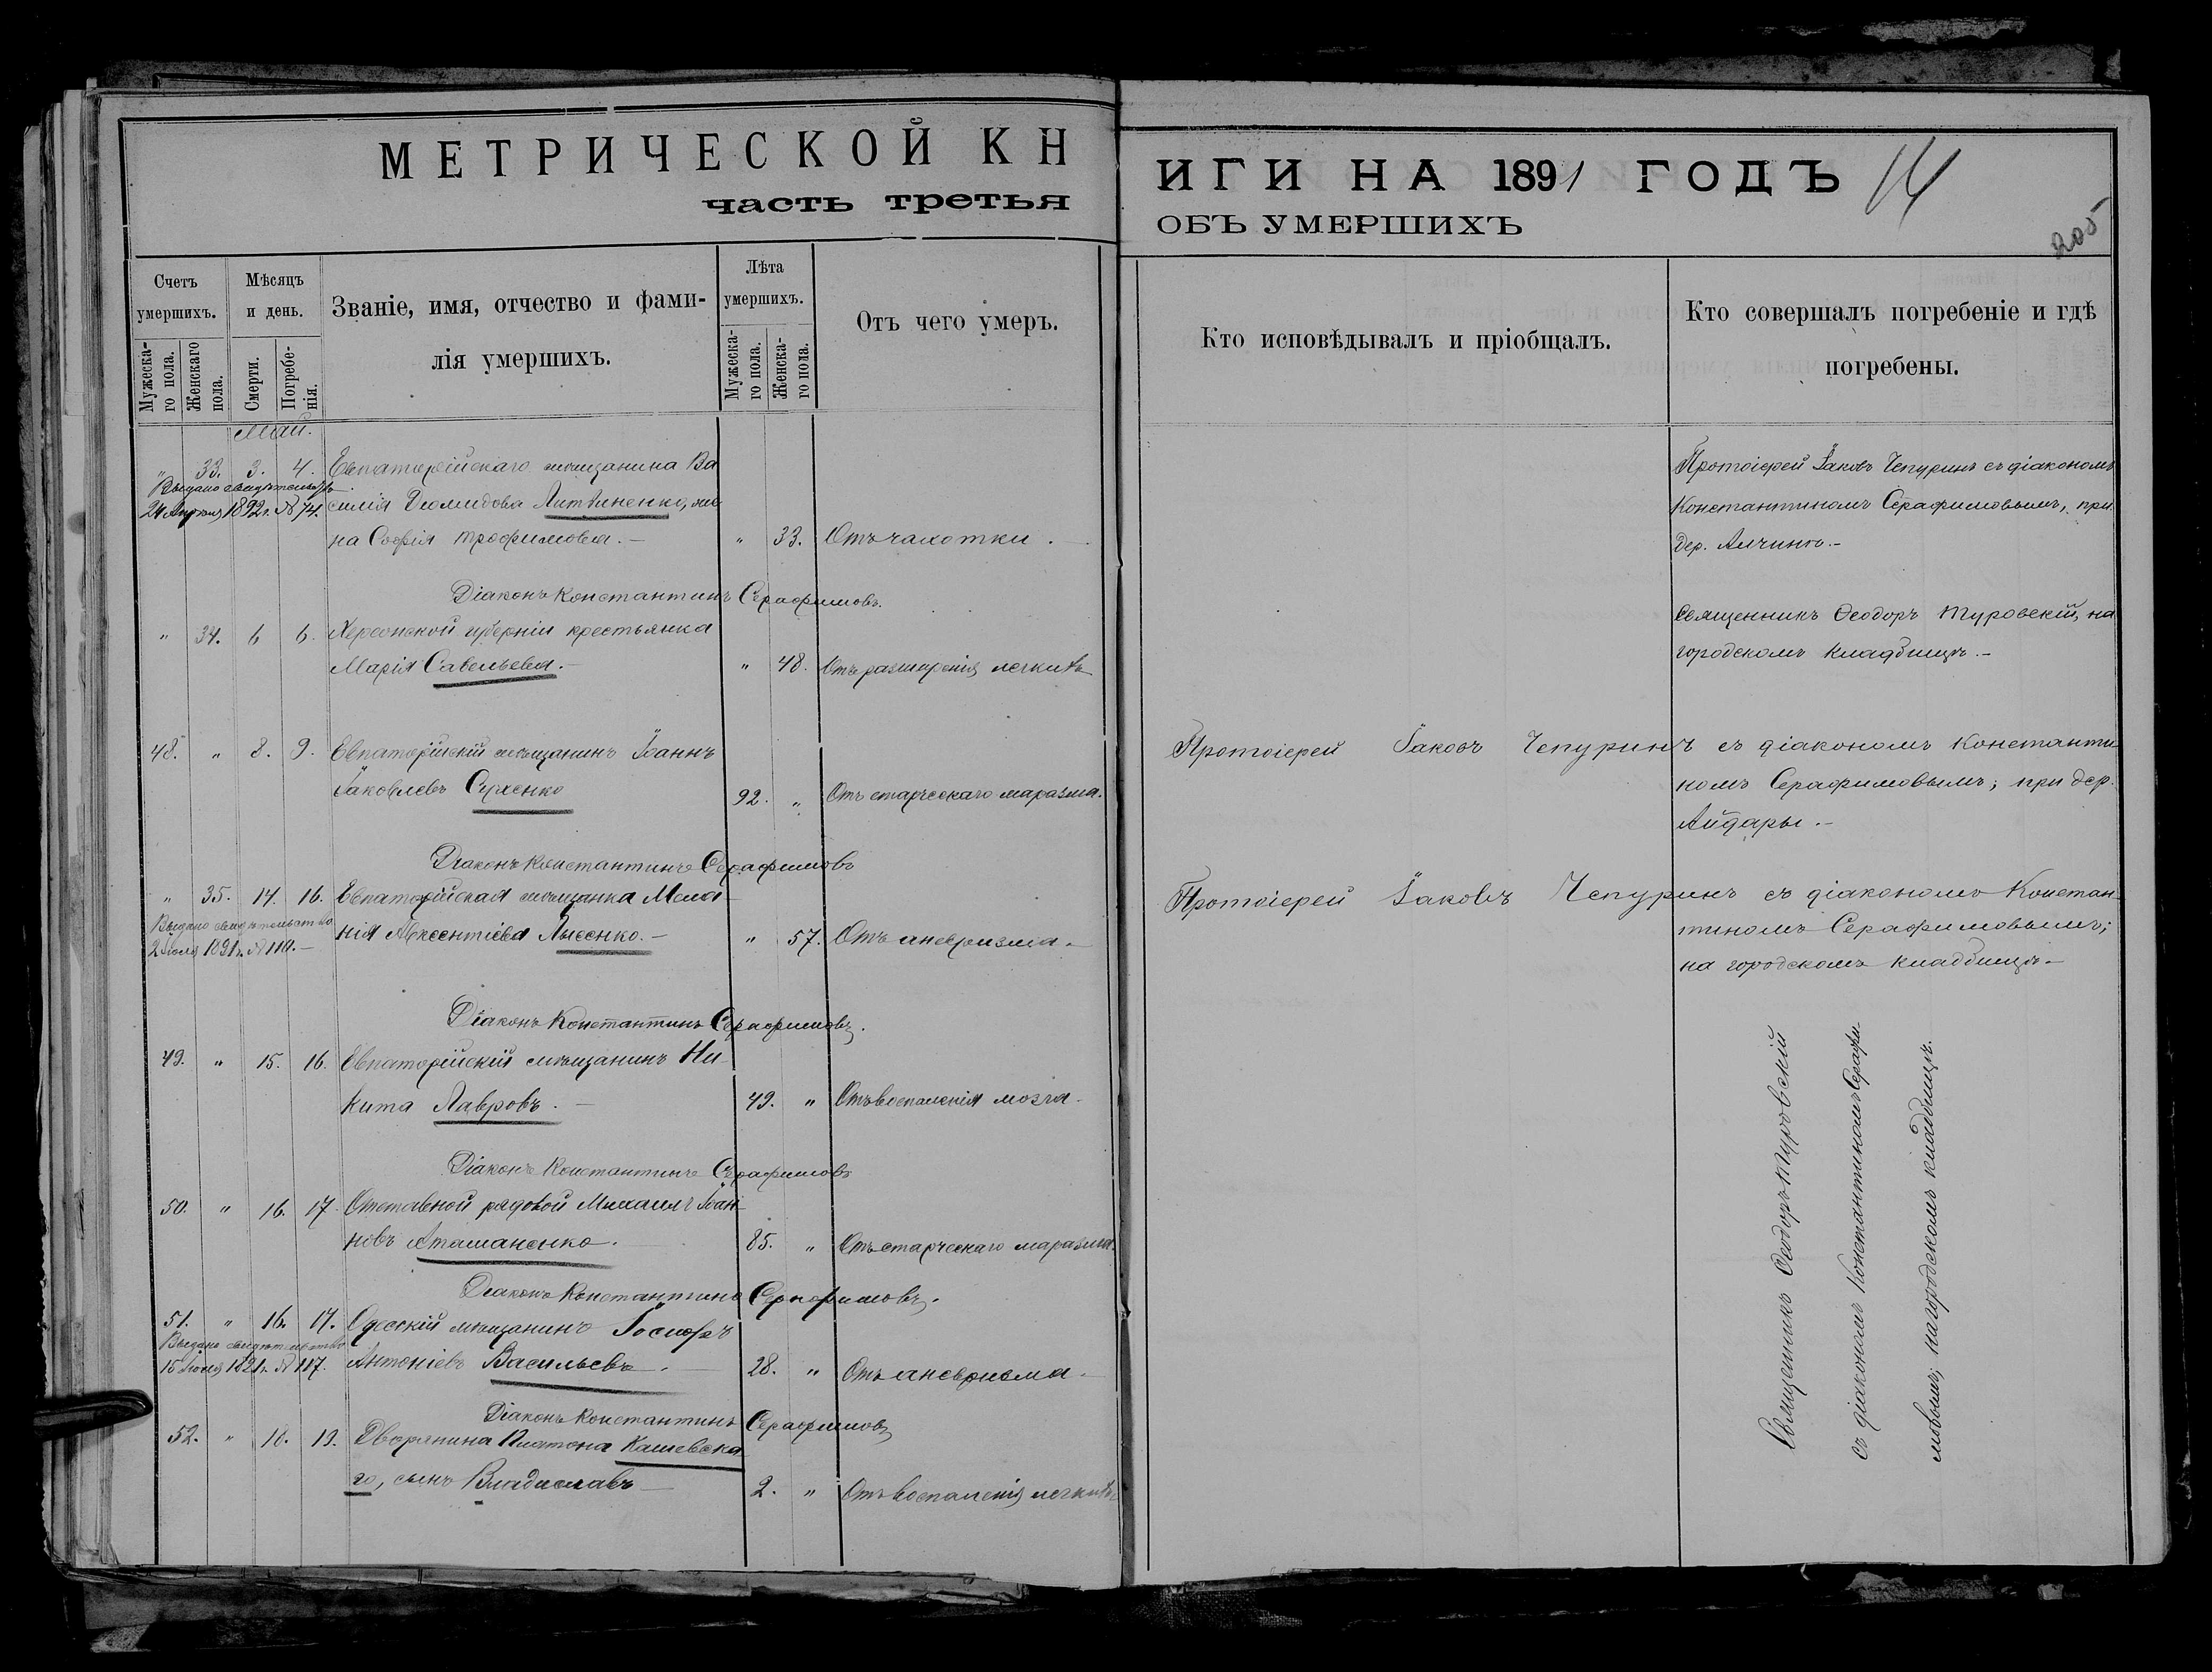 МЕТРИЧЕСКОЙ КН
часть третья
Счетъ умершихъ.
Мужескаго пола.
Женскаго пола.
Мѣсяцъ и день.
Смерти.
Погребенія.
Званіе, имя, отчество и фами-
лія умершихъ.
Лѣта умершихъ.
Мужеска-го пола.
Женска-го пола.
Отъ чего умеръ.
Май.
" 33. 3. 4. Евпаторійскаго мѣщанина Ва
Выдано свидѣтельств.
24 Апрѣля 1892 г. № 74. силія Діомидова Литвиненко, же
на Софія Трофимова. — " 33. Отъ чахотки.
Діаконъ Константинъ Серафимовъ.
" 34. 6 6. Херсонской губерніи крестьянка
Марія Савельева. — " 48. Отъ расширенія легкихъ
48. " 8. 9. Евпаторійскій мѣщанинъ Іоаннъ
Іаковлевъ Сухенко 92. " Отъ старческаго маразма.
Діаконъ Константинъ Серафимовъ
" 35. 14. 16. Евпаторійская мѣщанка Мела
Выдано свидѣтельство
2 Іюля 1891 г. № 110. — нія Авксентіева Лысенко. — " 57. Отъ аневризма.
Діаконъ Константинъ Серафимовъ.
49. " 15. 16. Евпаторійскій мѣщанинъ Ни
кита Лавровъ. — 49. " Отъ воспаленія мозга.
Діаконъ Константинъ Серафимовъ
50. " 16. 17. Отставной рядовой Михаилъ Іоан
новъ Атаманенко. 85. " Отъ старческаго маразма.
Діаконъ Константинъ Серафимовъ.
51. " 16. 17. Одесскій мѣщанинъ Іосифъ
Выдано свидѣтельство
15 Іюля 1891 г. № 117. Антоніевъ Васильевъ. 28. " Отъ аневризма.
Діаконъ Константинъ Серафимовъ
52. " 18. 19. Дворянина Платона Кашевска
го, сынъ Владиславъ — 2. " Отъ воспаленія легкихъ
ИГИ НА 1891 ГОДЪ
ОБЪ УМЕРШИХЪ
14
205
Кто исповѣдывалъ и пріобщалъ.
Кто совершалъ погребеніе и гдѣ
погребены.
Протоіерей Іаковъ Чепуринъ съ діакономъ
Константиномъ Серафимовымъ, при
дер. Алчинъ. —
Священникъ Ѳеодоръ Туровскій, на
городскомъ кладбищѣ. —
Протоіерей Іаковъ Чепуринъ съ діакономъ Константи
номъ Серафимовымъ; при дер.
Айдары. —
Протоіерей Іаковъ Чепуринъ съ діакономъ Констан-
тиномъ Серафимовымъ;
на городскомъ кладбищѣ —
Священникъ Ѳеодоръ Туровскій
съ діакономъ Константиномъ Серафи-
мовымъ; на городскомъ кладбищѣ.